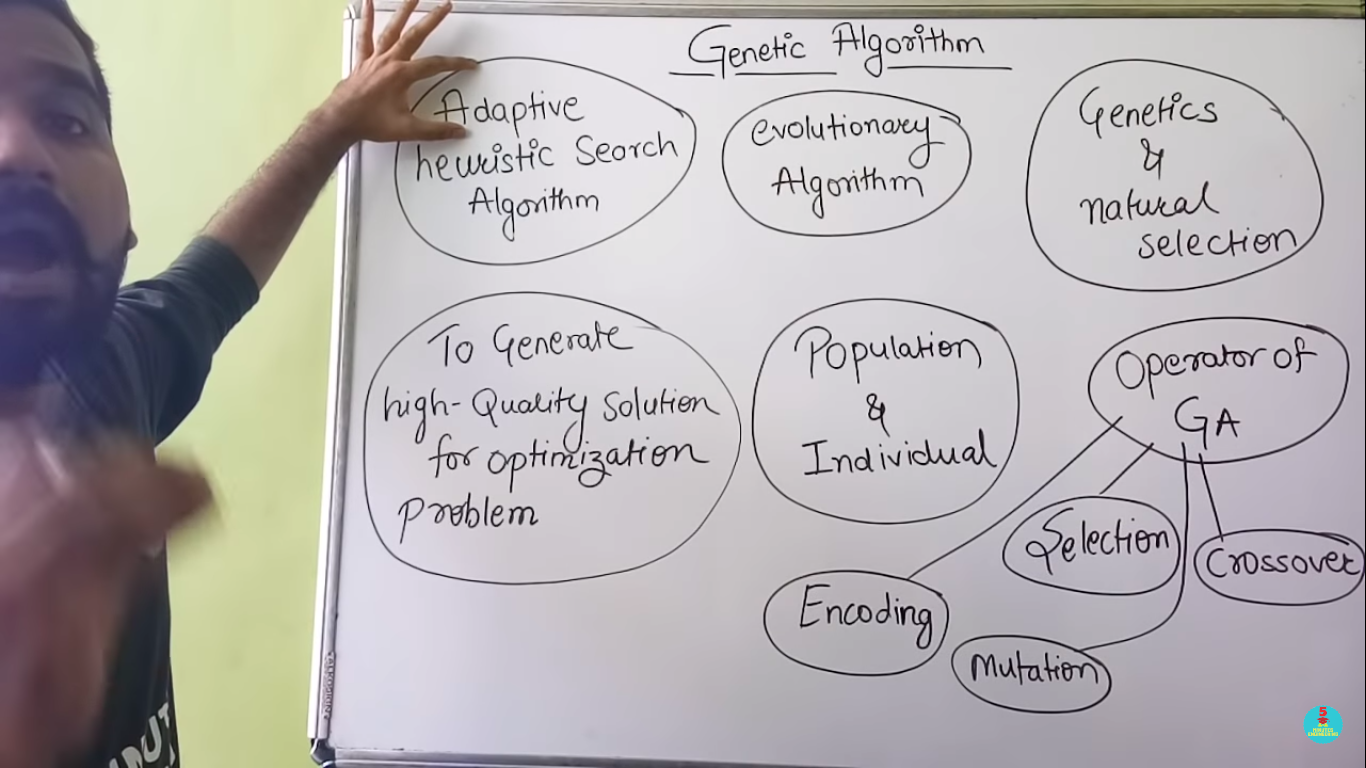 Genetic Algorithm
Adaptive
heuristic Search
Algorithm
evolutionary
Algorithm
Genetics
&
natural
selection
To Generate
high-Quality Solution
for optimization
problem
Population
&
Individual
Operator of
GA
Selection
Crossover
Encoding
Mutation
5